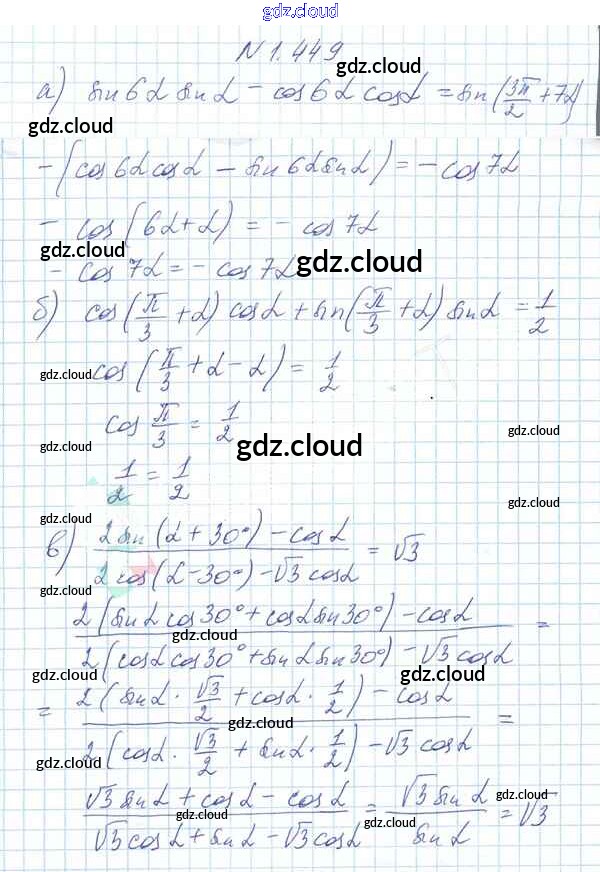 gdz.cloud
N 1.449
а) sin6α sinα − cos6α cosα = sin(3π/2 + 7α)
gdz.cloud
gdz.cloud
−(cos6α cosα − sin6α sinα) = −cos7α
gdz.cloud
− cos(6α+α) = − cos7α
gdz.cloud
− cos7α = − cos7α
gdz.cloud
б) cos(π/3 + α) cosα + sin(π/3 + α) sinα = 1/2
gdz.cloud gdz.cloud gdz.cloud
cos(π/3 + α − α) = 1/2
cos π/3 = 1/2
gdz.cloud gdz.cloud gdz.cloud
1/2 = 1/2
gdz.cloud gdz.cloud
в) 2sin(α + 30°) − cosα / 2cos(α−30°) − √3 cosα = √3
gdz.cloud gdz.cloud
2(sinα cos30° + cosα sin30°) − cosα / 2(cosα cos30° + sinα sin30°) − √3 cosα =
gdz.cloud
gdz.cloud gdz.cloud
= 2(sinα · √3/2 + cosα · 1/2) − cosα / 2(cosα · √3/2 + sinα · 1/2) − √3 cosα =
gdz.cloud
gdz.cloud gdz.cloud
√3 sinα + cosα − cosα / √3 cosα + sinα − √3 cosα = √3 sinα / sinα = √3
gdz.cloud
gdz.cloud gdz.cloud